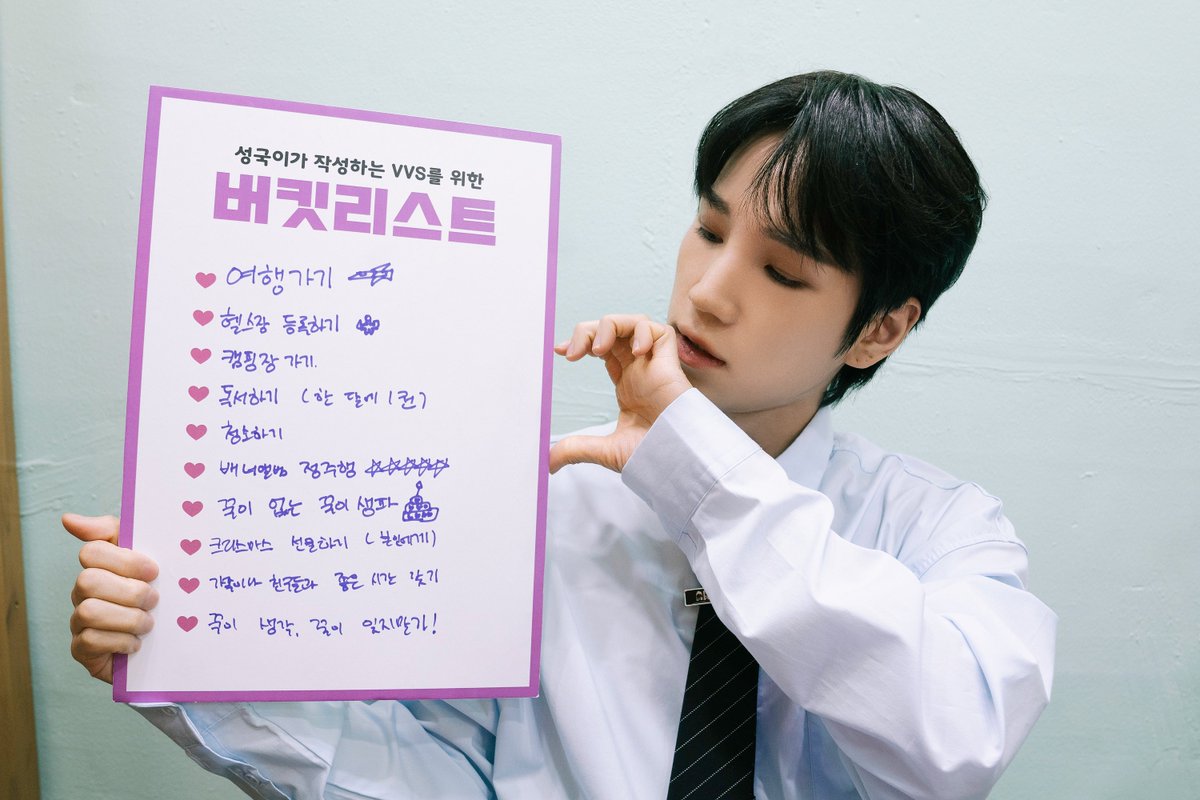 성국이가 작성하는 VVS를 위한
버킷리스트
여행가기
헬스장 등록하기
캠핑장 가기.
독서하기 (한 달에 1권)
청소하기
배너앨범 정주행
꾹이 없는 꾹이 생파
크리스마스 선물하기 (본인에게)
가족이나 친구들과 좋은 시간 갖기
꾹이 생각, 꾹이 잊지말기!